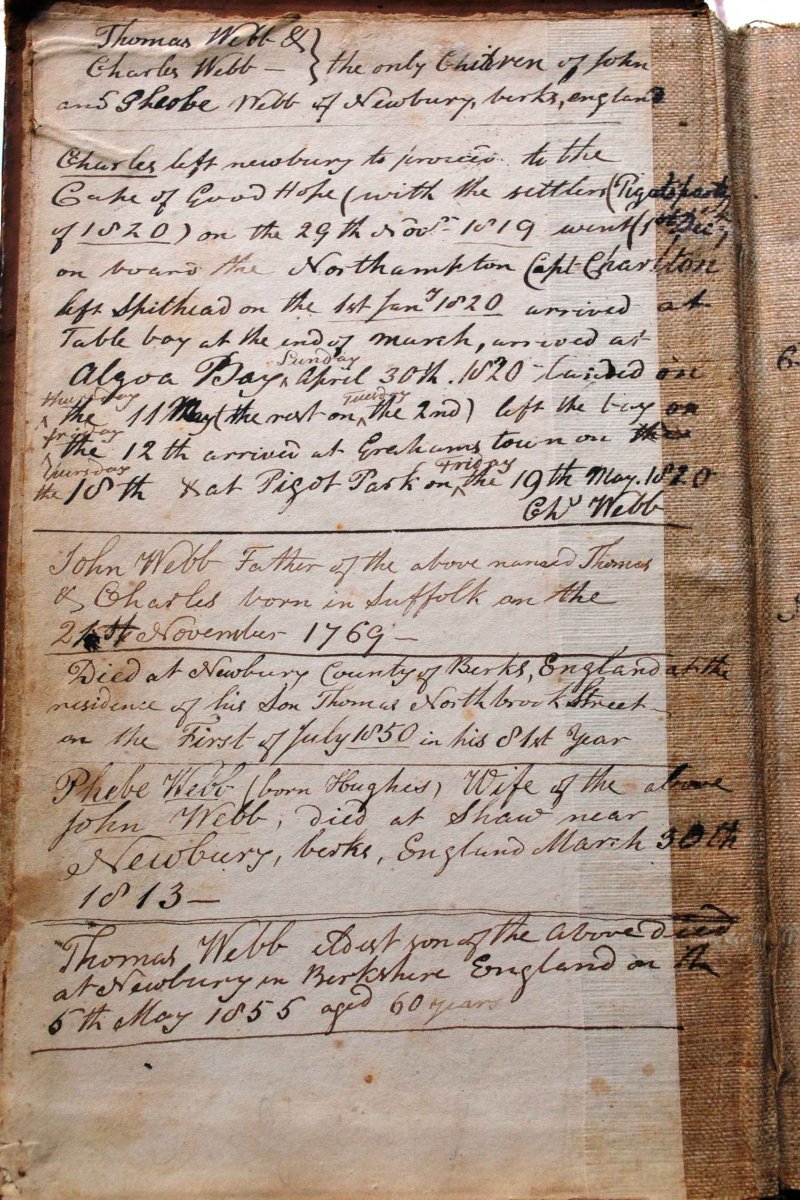 Thomas Webb &
Charles Webb — } the only Children of John
and Pheobe Webb of Newbury, berks, england
Charles left newbury to proceed to the
Cape of Good Hope (with the settlers (Pigots party
of 1820) on the 29th Novr 1819 went (1st Dec)
on board the Northampton Capt Charlton
left Spithead on the 1st Jany 1820 arrived at
Table bay at the end of march, arrived at
Sunday
Algoa Bay, April 30th. 1820 - landed on
thursday Tuesday
the 11 May (the rest on the 2nd) left the bay on
friday
the 12th arrived at Grahams town on the
Thursday Friday
the 18th & at Pigot Park on the 19th May. 1820
Chs Webb
John Webb Father of the above named Thomas
& Charles born in Suffolk on the
21st November 1769 —
Died at Newbury County of Berks, England at the
residence of his Son Thomas Northbrook Street —
on the First of July 1850 in his 81st Year
Phebe Webb (born Hughes) Wife of the above
John Webb, died at Shaw near
Newbury, berks, England March 30th
1813 —
Thomas Webb eldest son of the above died
at Newbury in Berkshire England on the
5th May 1855 aged 60 years
6